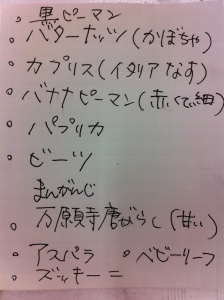 。黒ピーマン
。バターナッツ(かぼちゃ)
。カプリス(イタリアなす)
。バナナピーマン(赤くて細)
。パプリカ
。ビーツ
まんがんじ
。万願寺唐がらし(甘い)
。アスパラ 。ベビーリーフ
。ズッキーニ